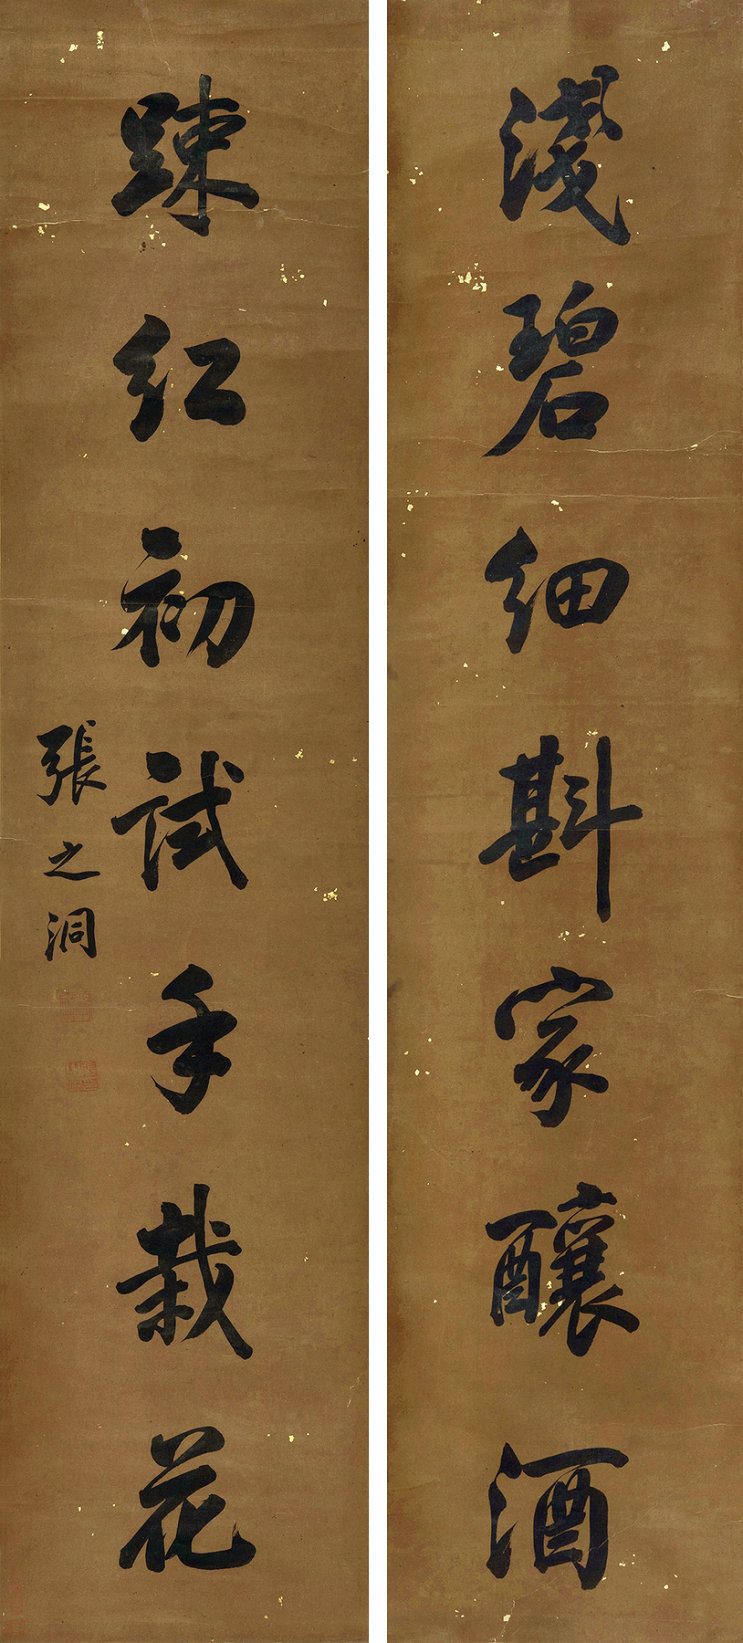 淺碧細斟家釀酒
踈红初試手栽花
張之洞